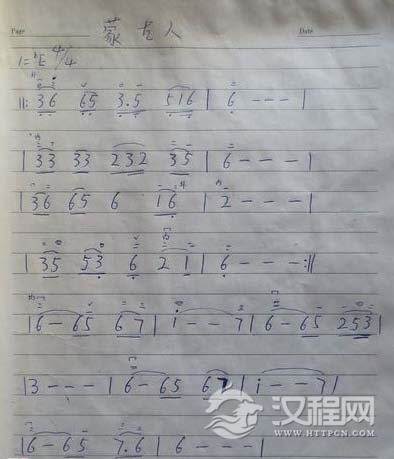 Page
Date
蒙古人
1=♭E 4/4
||: 36 65 3.5 516 | 6 - - - |
| 33 33 232 35 | 6 - - - |
| 36 65 6 16 | 2 - - - |
| 35 53 6 21 | 6 - - - :||
| 6 - 65 67 | i - - 7 | 6 - 65 253 |
| 3 - - - | 6 - 65 67 | i - - 7 |
| 6 - 65 7.6 | 6 - - - |
汉程网
WWW.HTTPCN.COM